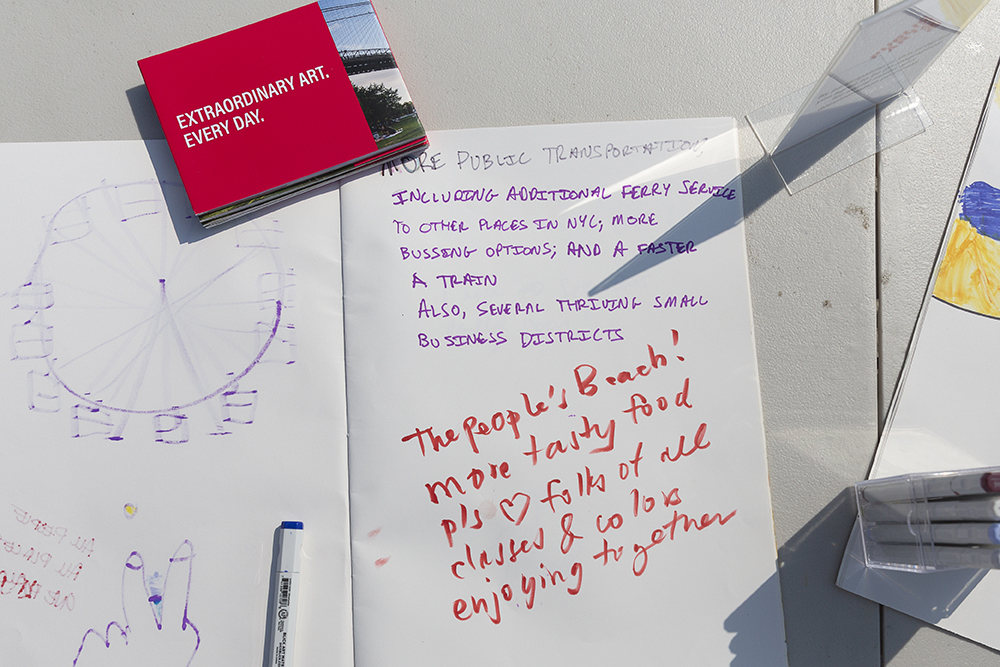 EXTRAORDINARY ART.
EVERY DAY.
MORE PUBLIC TRANSPORTATION
INCLUDING ADDITIONAL FERRY SERVICE
TO OTHER PLACES IN NYC; MORE
BUSSING OPTIONS; AND A FASTER
A TRAIN
ALSO, SEVERAL THRIVING SMALL
BUSINESS DISTRICTS
The people's Beach!
more tasty food
pls ♡ folks of all
classes & colors
enjoying together